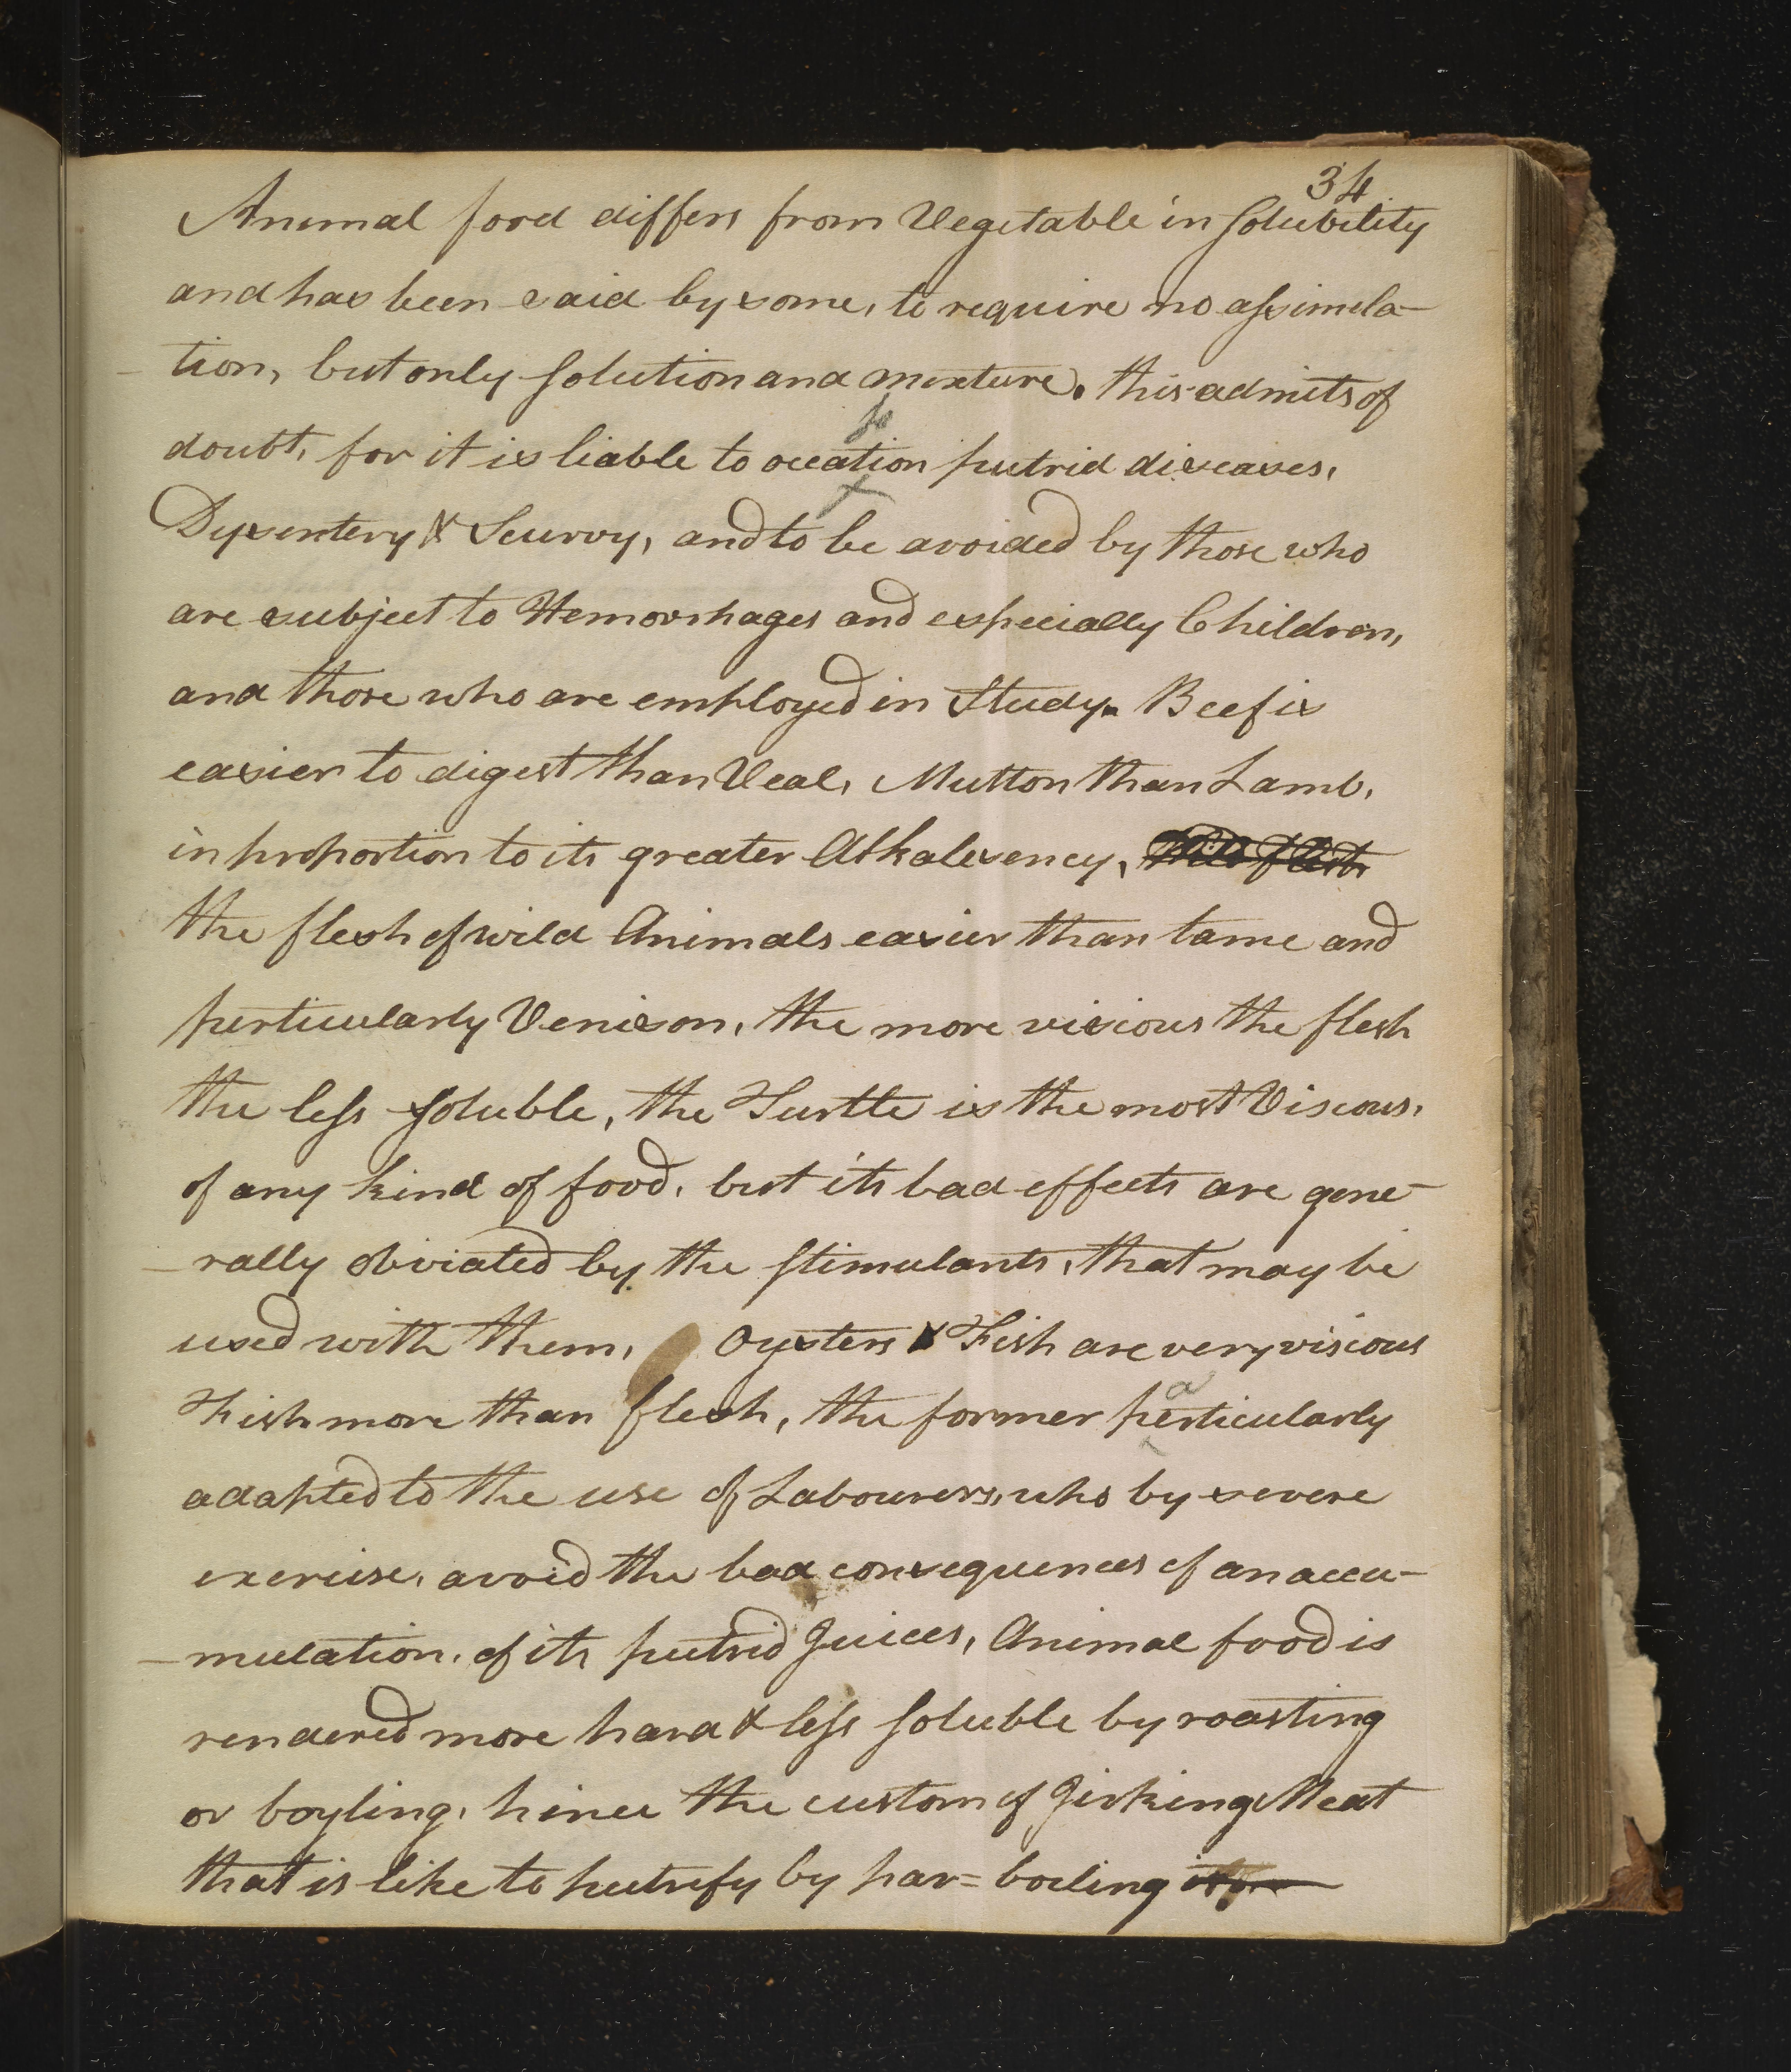 34
Animal food differs from Vegetable in Solubility
and has been said by some, to require no assimela-
-tion, but only Solution and mixture. this admits of
doubt, for it is liable to occation putrid diseases,
Dysentery & Scurvy, and to be avoided by those who
are subject to Hemorrhages and especially Children,
and those who are employed in Study. Beef is
easier to digest than Veal, Mutton than Lamb,
in proportion to its greater Alkalesency,
the flesh of wild Animals easier than tame and
perticularly Venison, the more visious the flesh
the less Soluble, the Turtle is the most Viscous,
of any kind of food, but its bad effects are gene-
-rally obviated by the Stimulants, that may be
used with them, Oysters & Fish are very viscous
Fish more than flesh, the former perticularly
adapted to the use of Labourers, who by severe
exercise, avoid the bad consequences of an accu-
-mulation, of its putrid Juices, Animal food is
rendered more hard & less Soluble by roasting
or boyling, hince the custom of Jirking Meat
that is like to putrefy by par=boiling